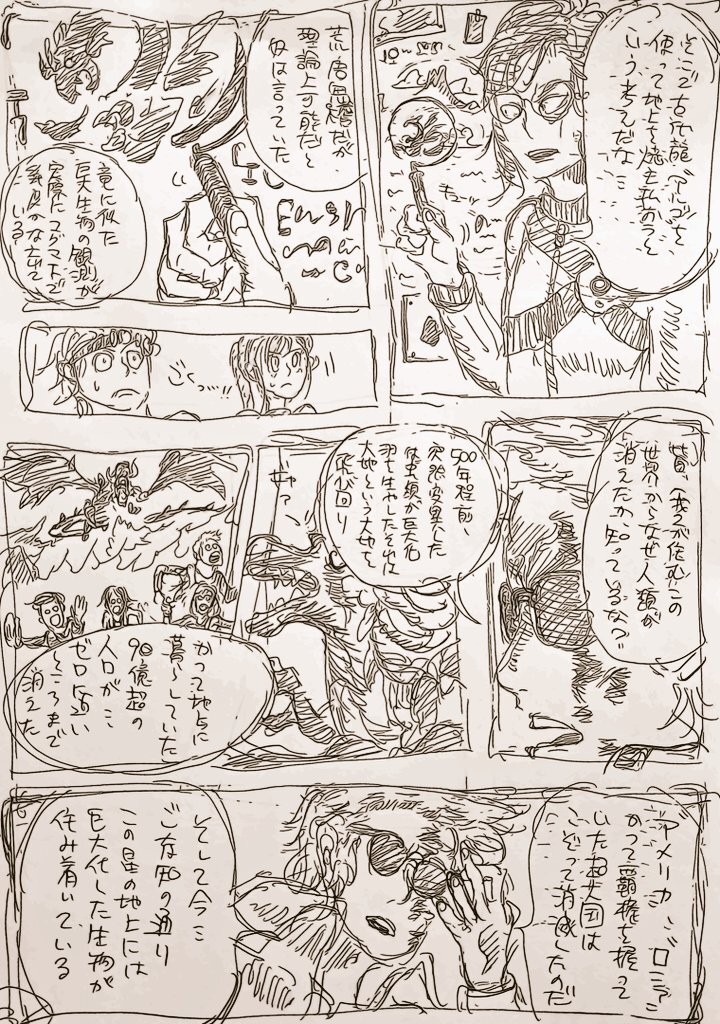 そこで古代龍
使って地上を焼き払おうと
いう考えだな…
キュッ
荒唐無稽だが
理論上可能だと
奴は言っていた
竜に似た
巨大生物の観測が
いる
ごくっ…!!
皆、我々が住むこの
世界からなぜ人類が
消えたか、知っているな?
500年程前、
突然変異した
は虫類が巨大化
羽を生やしたそれは
大地という大地を
飛び回り
かつて地上に
暮らしていた
90億超の
人口が…
ゼロに近い
ところまで
消えた
アメリカ、ロシア…
かつて覇権を握って
いた超大国は
そろって消滅したのだ
そして今…
ご存知の通り
この星の地上には
巨大化した生物が
住み着いている